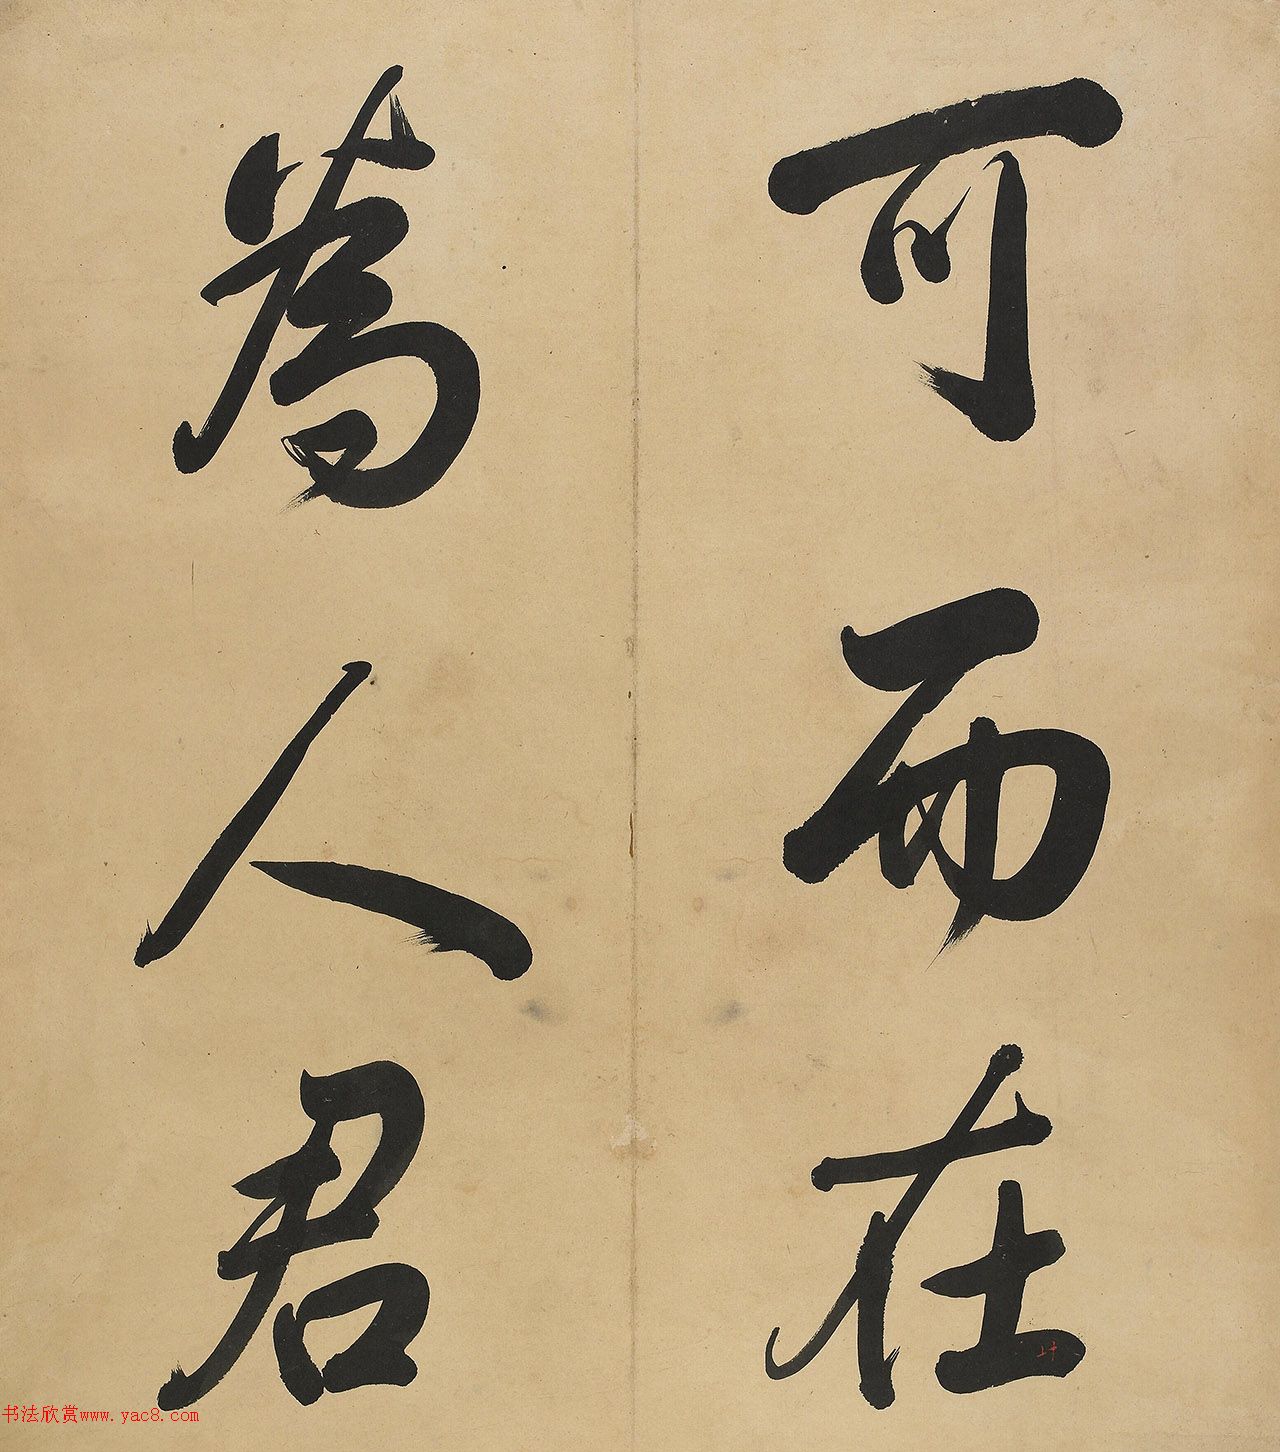 可而在
為人君
书法欣赏www.yac8.com